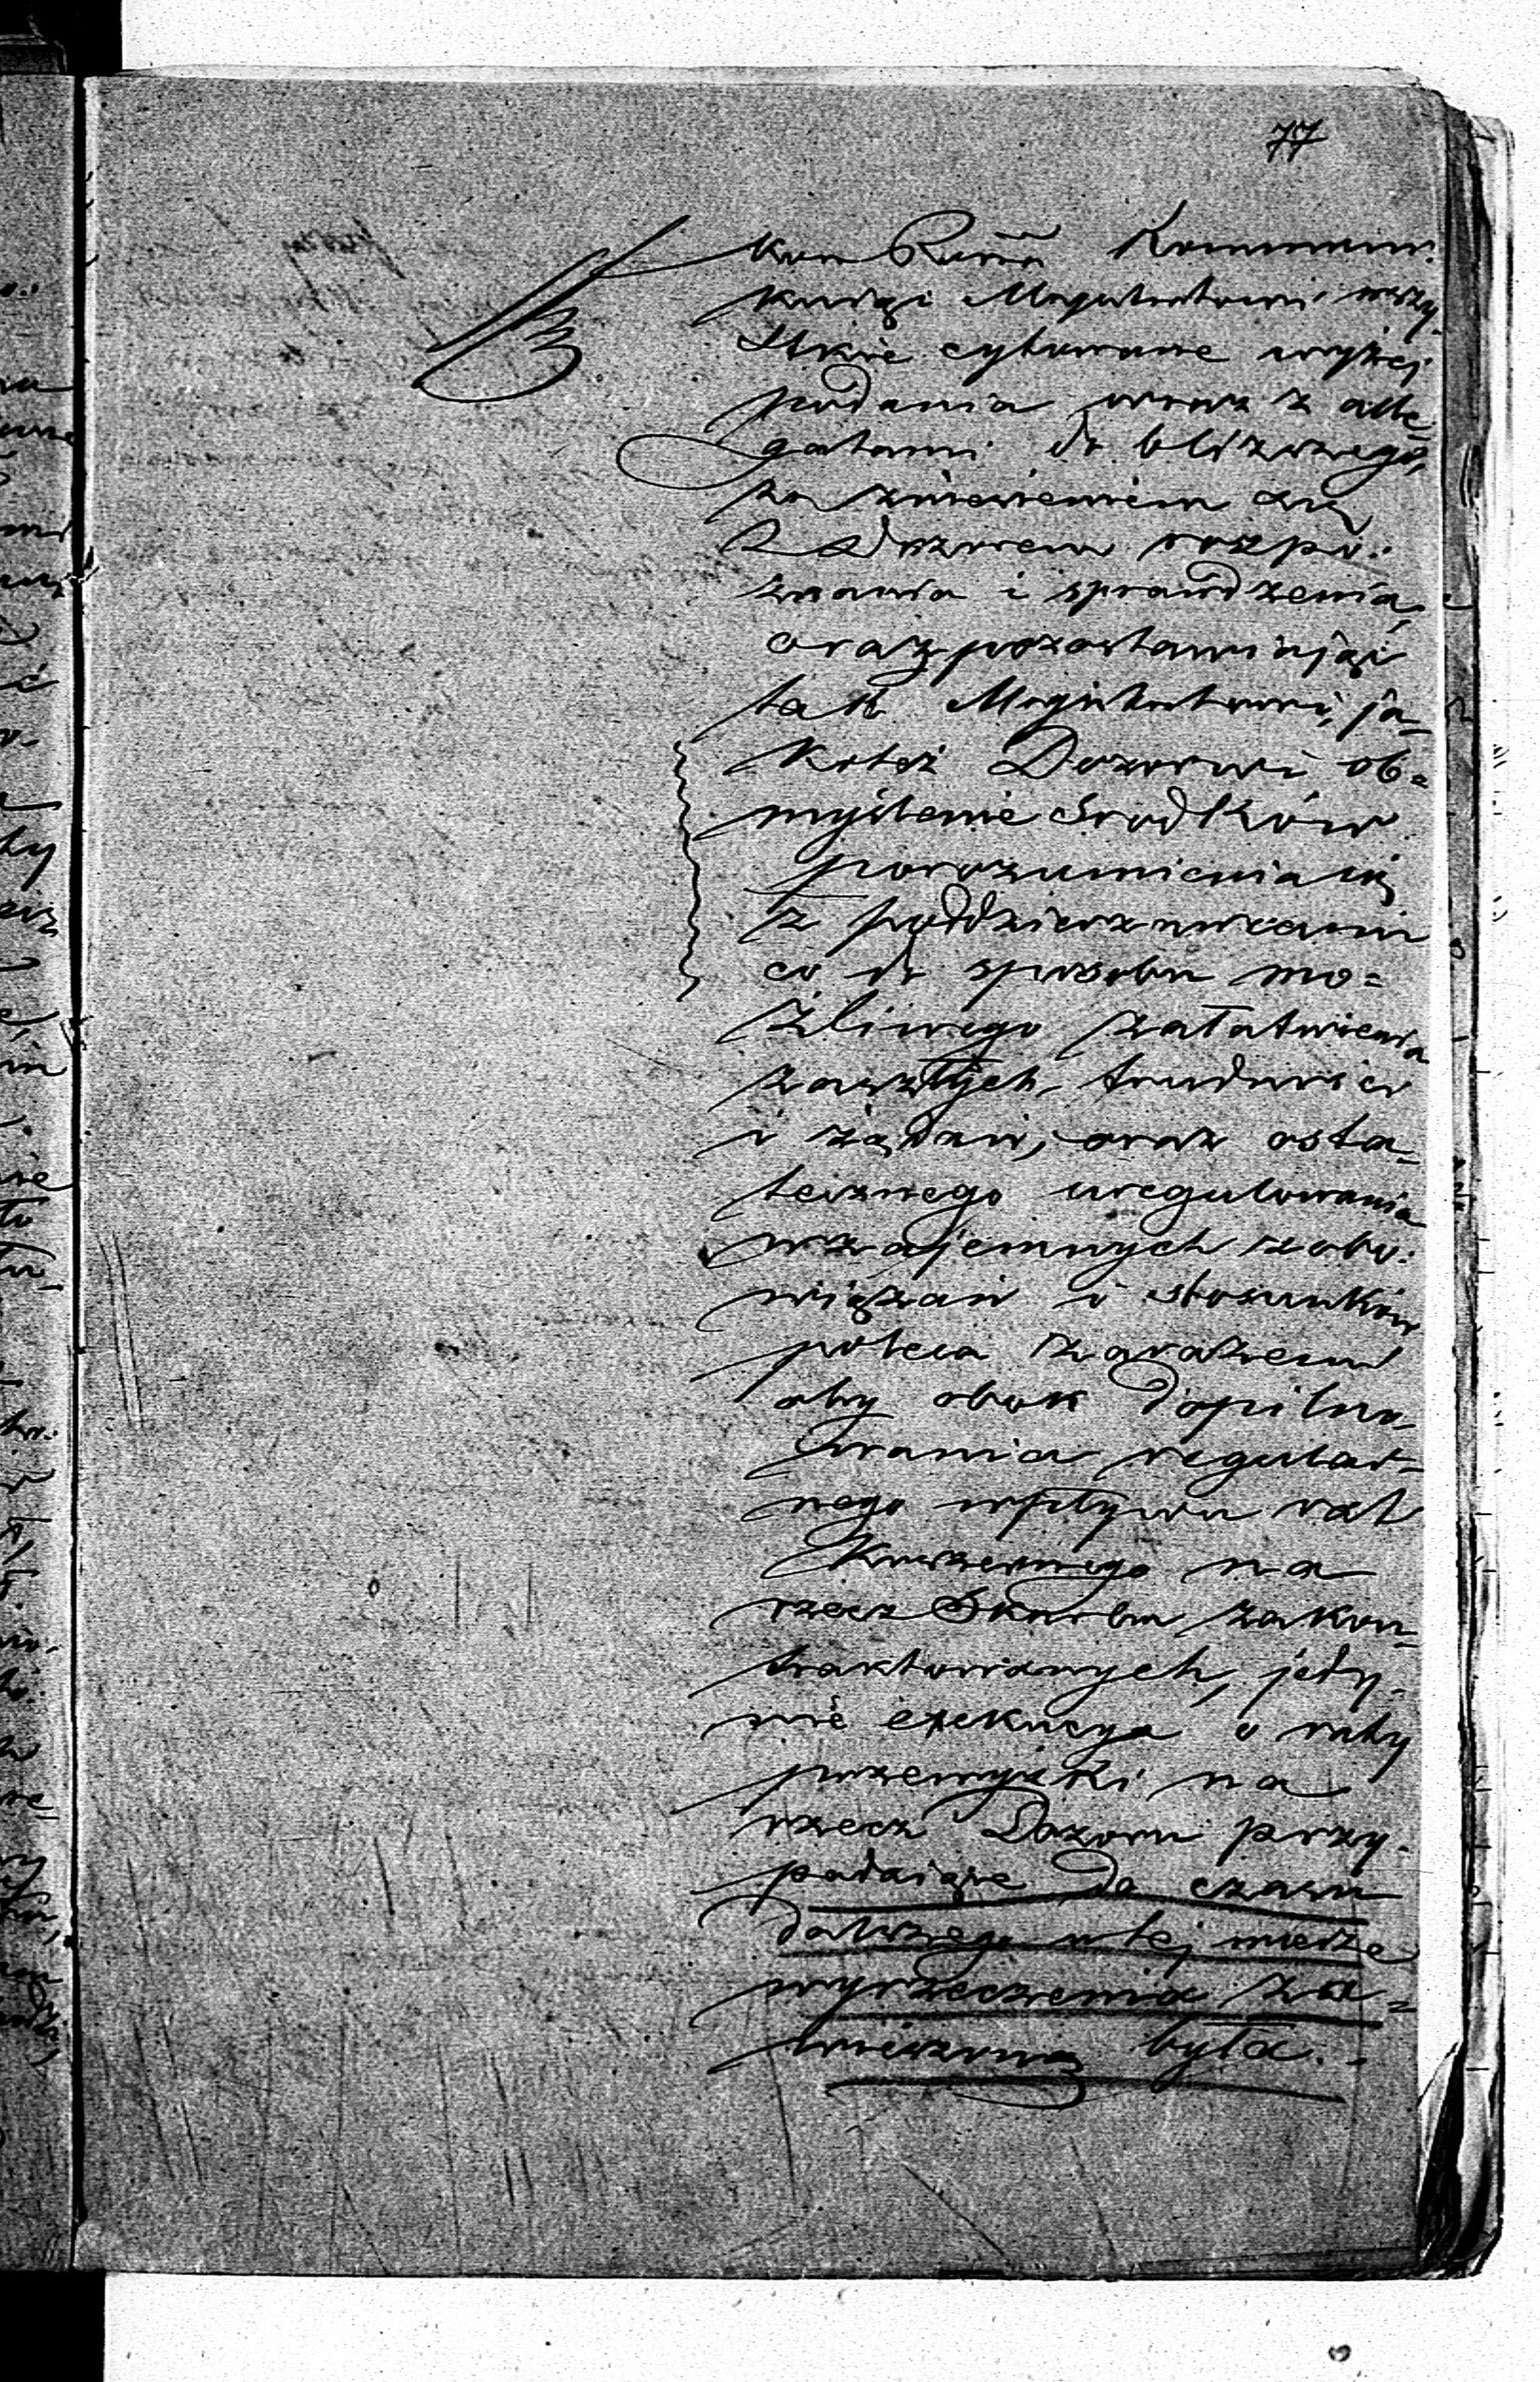 77
Kom Rząd: Kommuni:
kując Magistratowi wszy-
stkie cytowane wyżej
podania wraz z alle-
gatami do bliższego,
za zniesieniem się
z Dozorem rozpo:
znania i sprawdzenia,
oraz pozostawiając
tak Magistratowi, ja-
koteż Dozorowi ob=
myślenie środków
porozumienia się
z poddzierzawcami
co do sposobu mo=
żliwego załatwienia
zaszłych trudności
i żądań, oraz osta-
tecznego uregulowania
wzajemnych zobo:
wiązań i stosunków
poleca zarazem
aby obok dopilno-
wania regular-
nego wpływu rat
Koszernego na
rzecz Skarbu zakon-
traktowanych, jedy-
nie exekucya o raty
przewyżki na
rzecz Dozoru przy-
padające do czasu
dalszego w tej mierze
wyrzeczenia za=
wieszoną była.